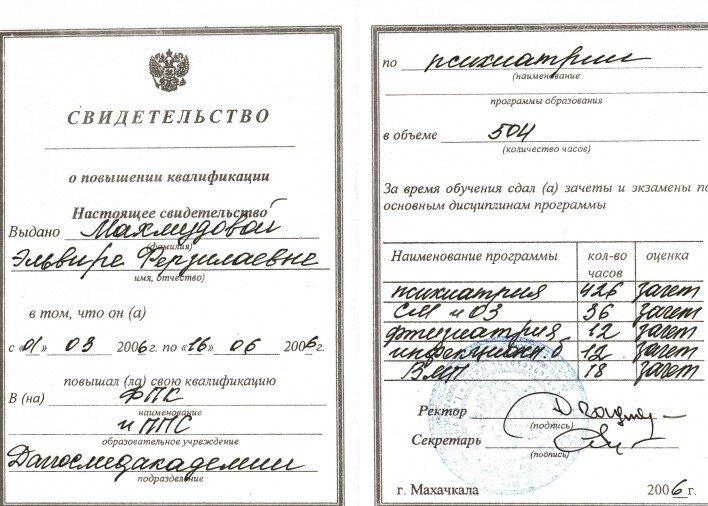 СВИДЕТЕЛЬСТВО
о повышении квалификации
Настоящее свидетельство
Выдано Махмудовой
(фамилия)
Эльвире Ферзилаевне
имя, отчество)
в том, что он (а)
с «01» 03 2006 г. по «16» 06 2006 г.
повышал (ла) свою квалификацию
В (на) ФПК
наименование
и ППС
образовательное учреждение
Дагосмедакадемии
подразделение
по психиатрии
(наименование
программы образования
в объеме 504
(количество часов)
За время обучения сдал (а) зачеты и экзамены по
основным дисциплинам программы
Наименование программы кол-во часов оценка
психиатрия 426 зачет
СМ и ОЗ 36 зачет
фтизиатрия 12 зачет
инфекцион. б 12 зачет
ВМП 18 зачет
Ректор
(подпись)
Секретарь
(подпись)
г. Махачкала 2006 г.